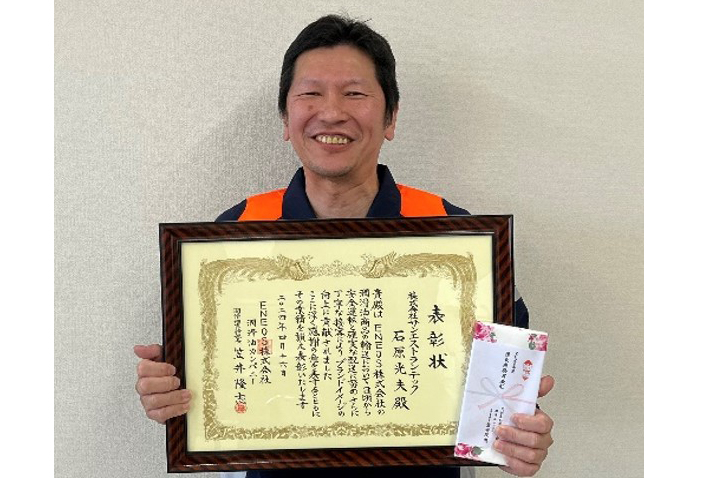 表彰状
株式会社サンエストランテック
石原光夫殿
貴殿はENEOS株式会社の
潤滑油商品の輸送において日頃から
安全運転と確実な配送に努めさらに
丁寧な接客によりブランドイメージの
向上に貢献されました
ここに深く感謝の意を表するとともに
その業績を讃え表彰いたします
二〇二四年四月十六日
ENEOS株式会社
潤滑油カンパニー
笠井隆志